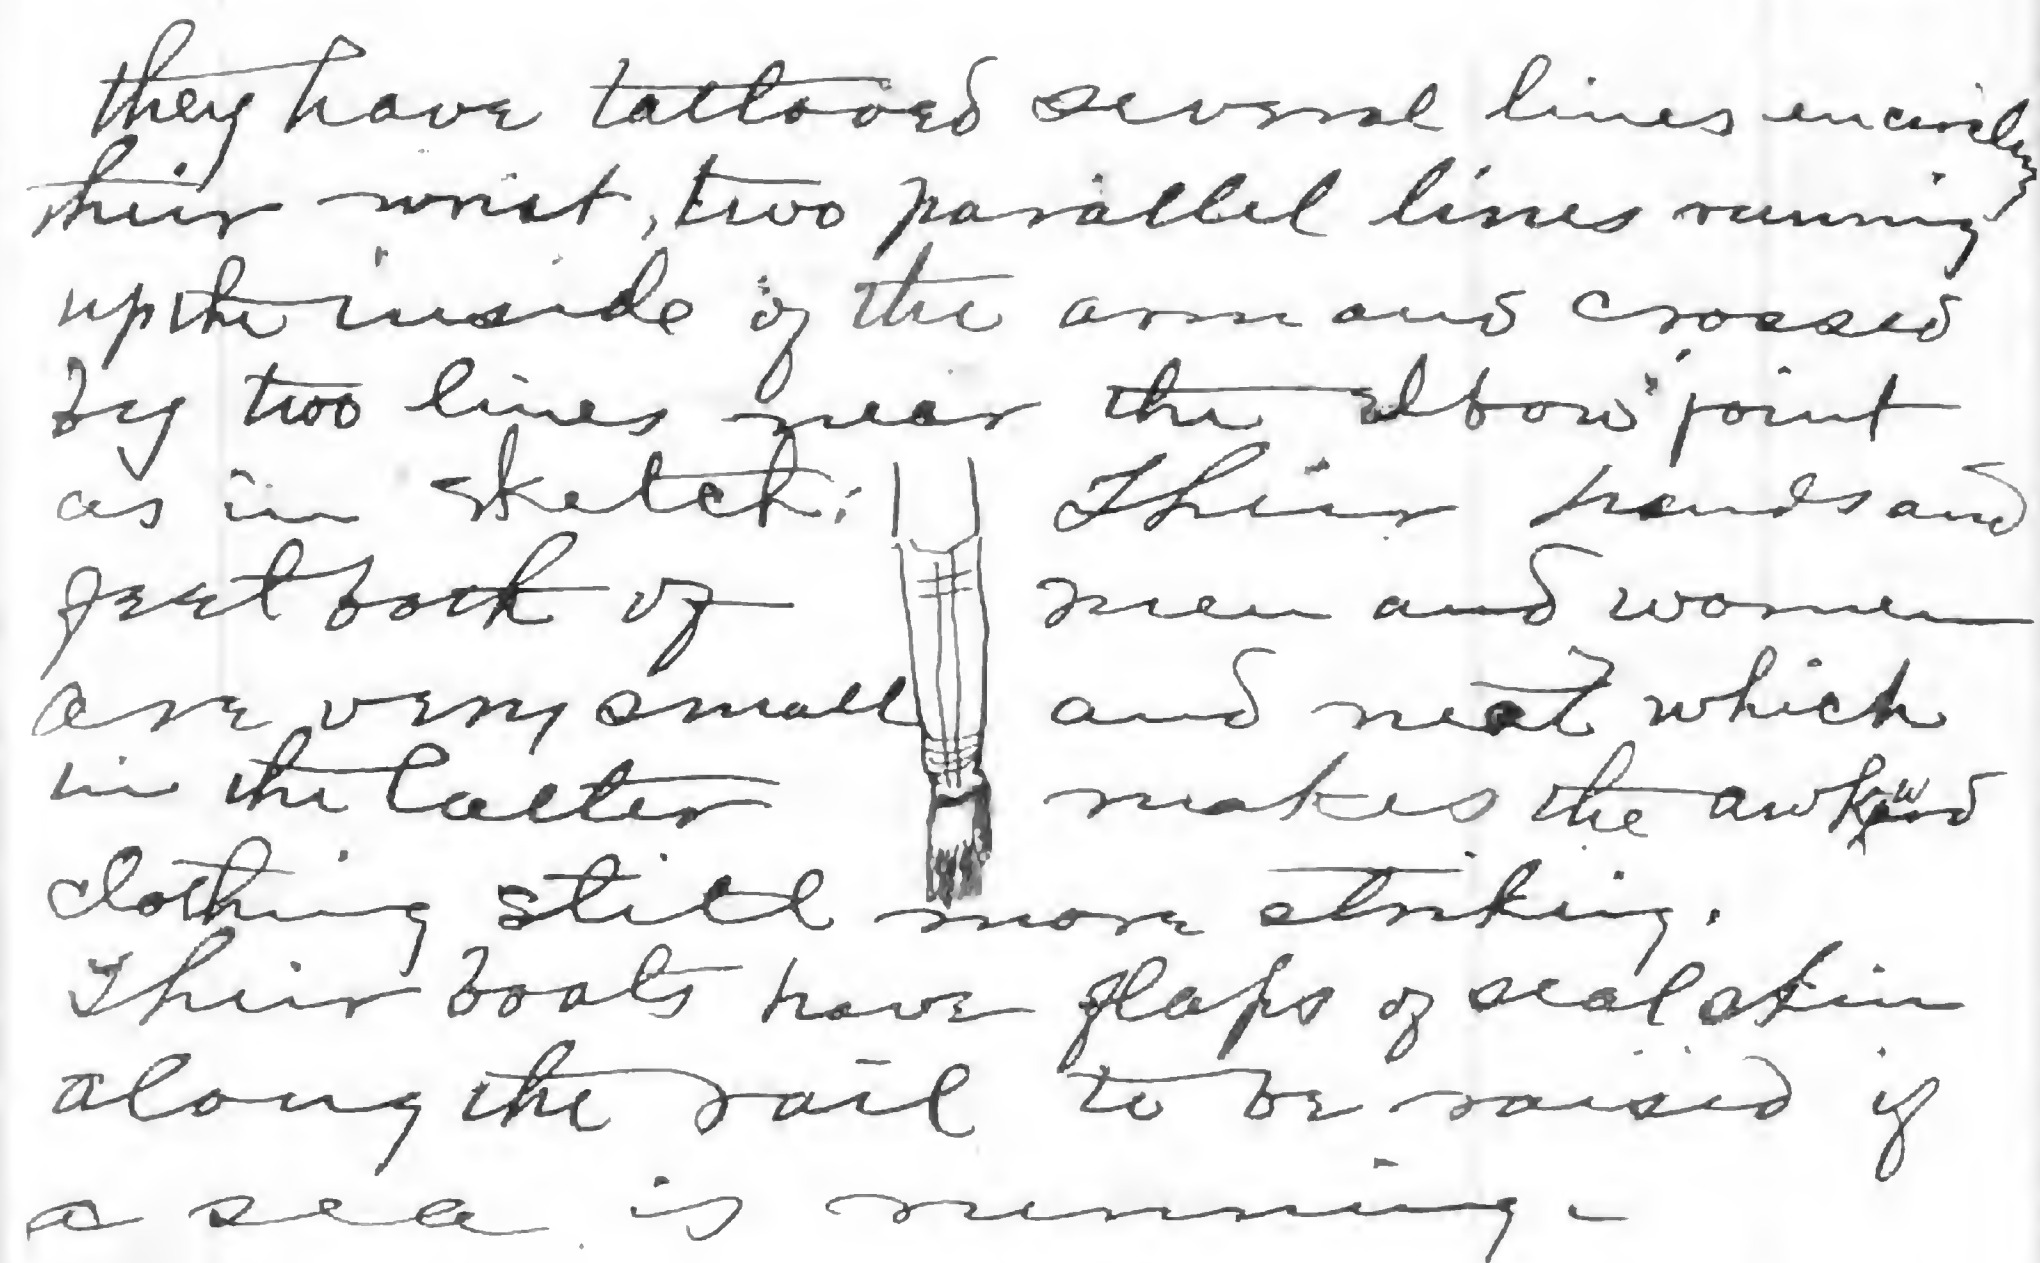 they have tattooed several lines encircling
their wrist, two parallel lines running
up the inside of the arm and crossed
by two lines near the elbow joint
as in sketch: Their hands and
feet both of men and women
are very small and neat which
in the latter makes the awkward
clothing still more striking.
Their boats have flaps of seal skin
along the rail to be raised if
a sea is running -